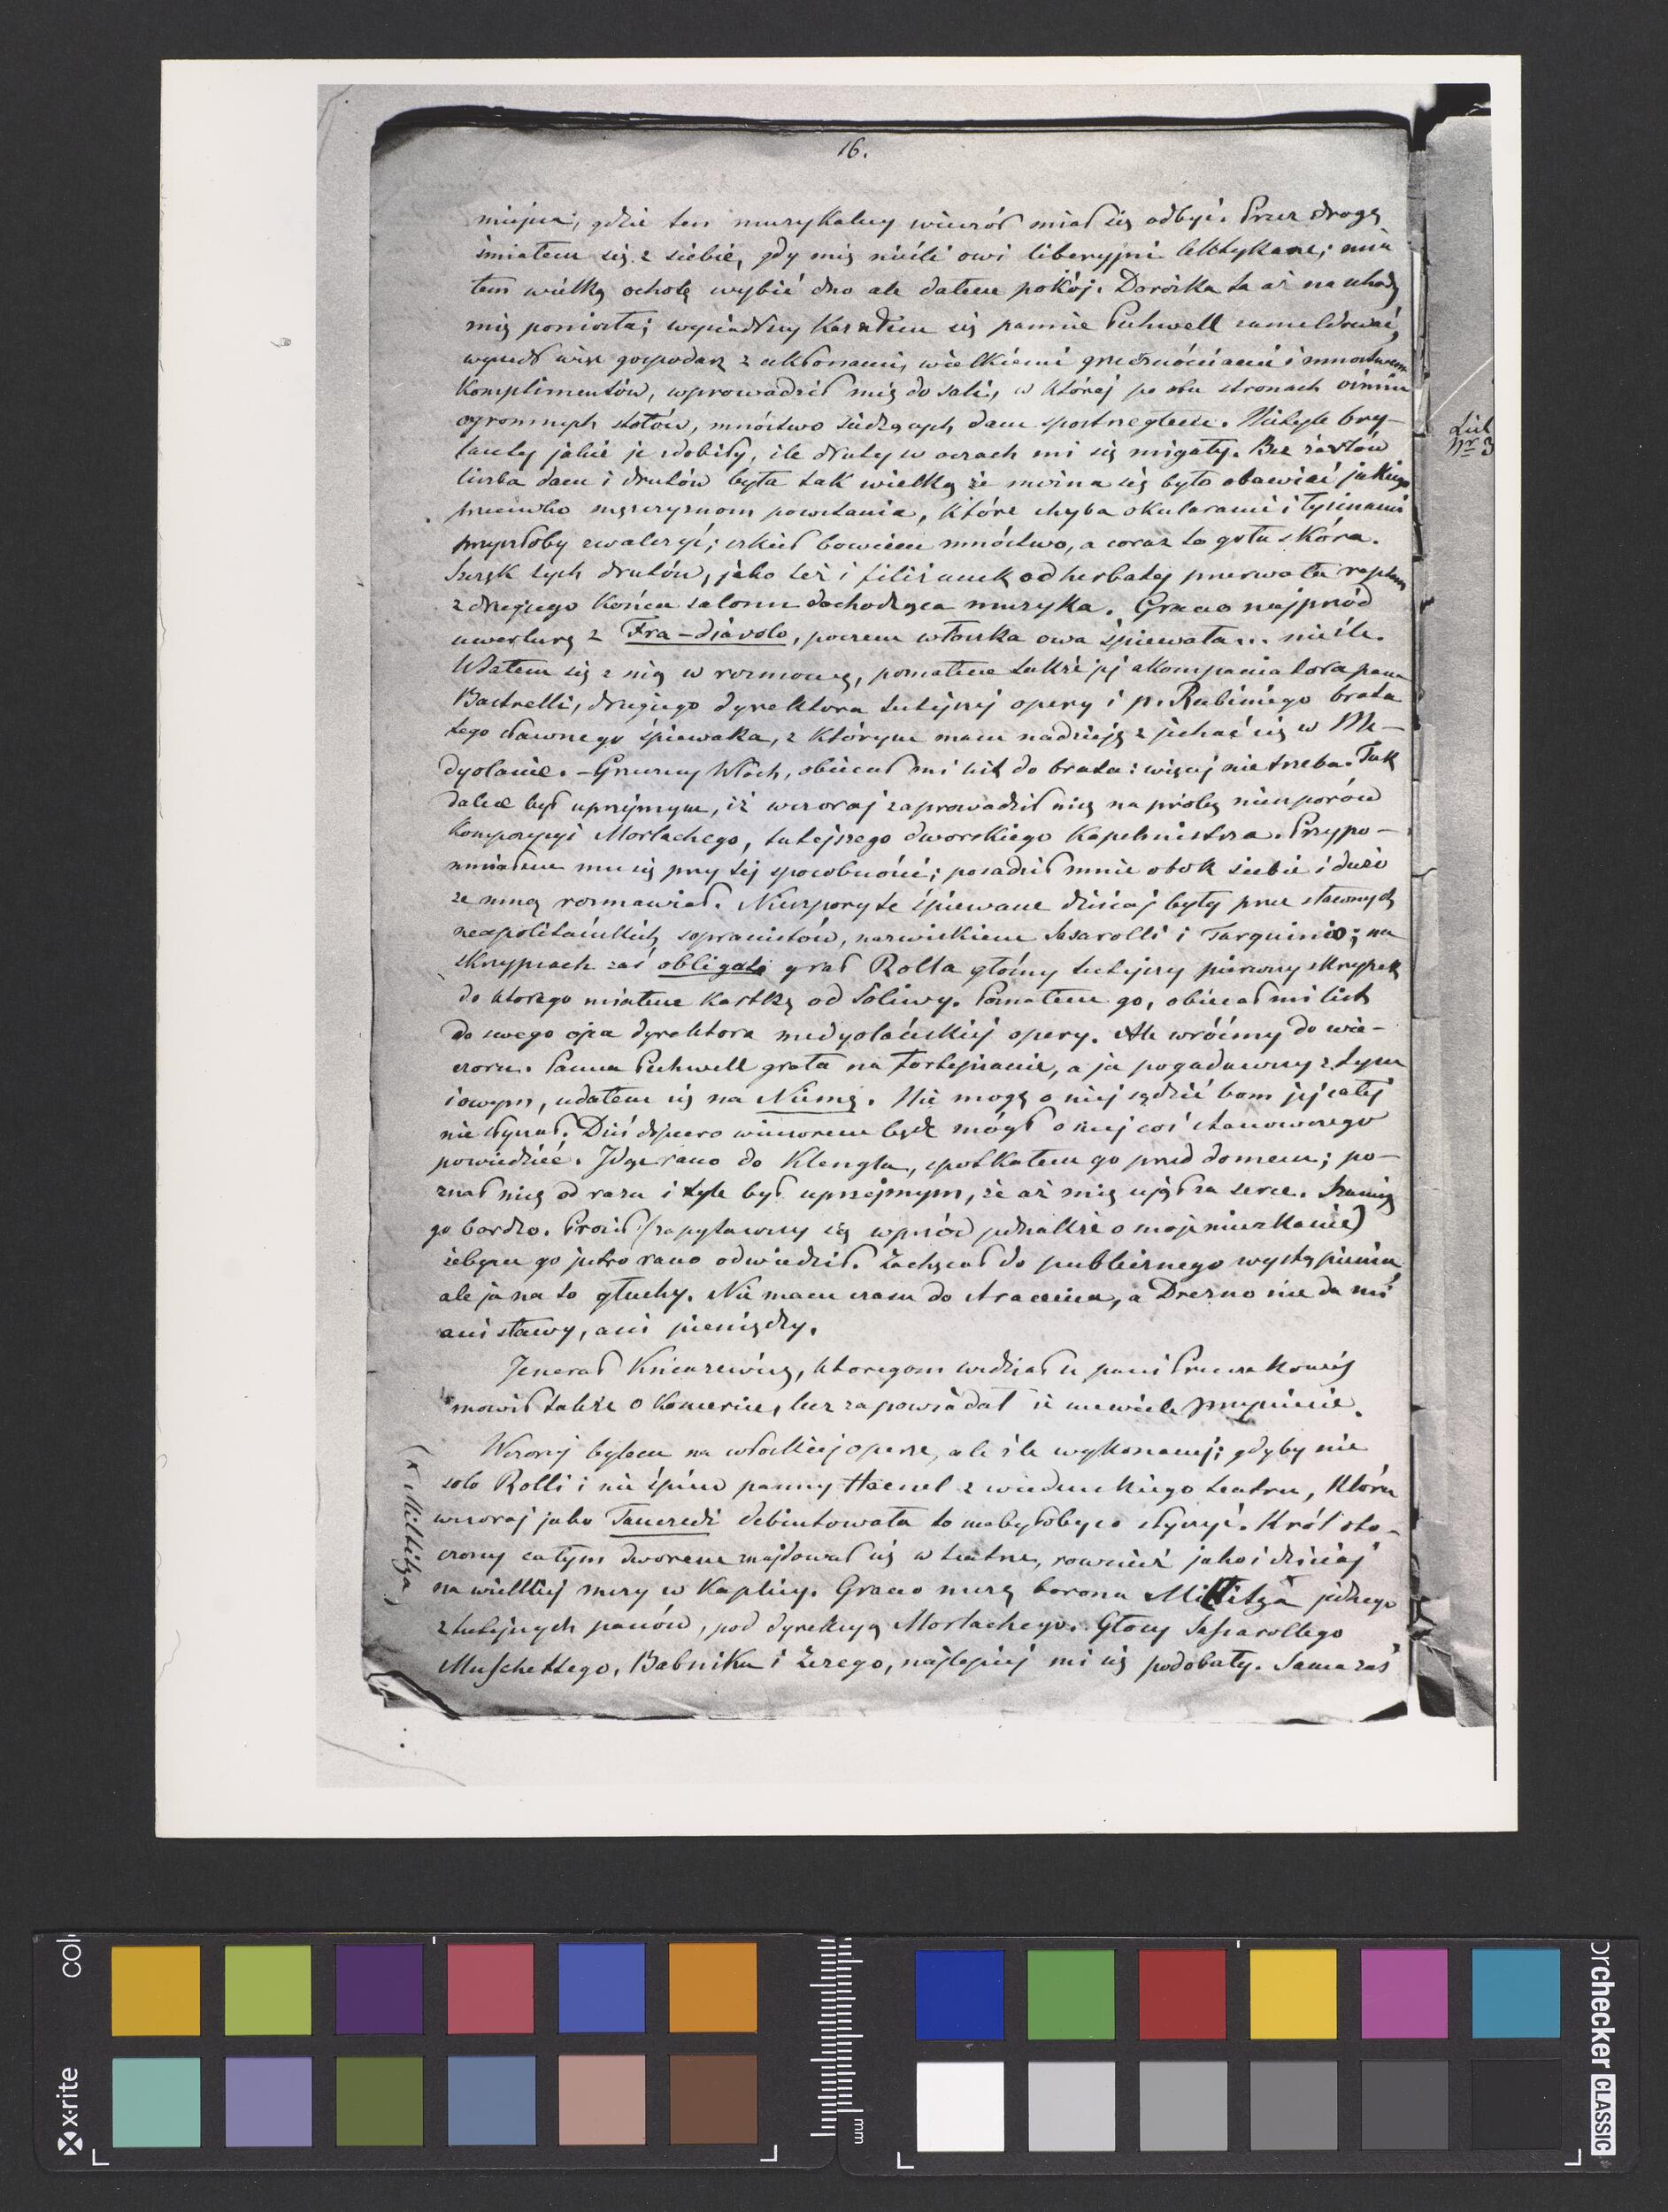 16.
miejsca, gdzie ten muzykalny wieczór miał się odbyć. Przez drogę
śmiałem się z siebie, gdy mię nieśli owi liberyjni lektykarze; mia
łem wielką ochotę wybić dno ale dałem pokój. Dorożka ta aż na schody
mię poniosła; wysiadłszy kazałem się pannie Pechwell zameldować,
wyszedł więc gospodarz z ukłonami, wielkiemi grzecznościami i mnóstwem
komplimentów, wprowadził mię do sali, w której po obu stronach ośmiu
ogromnych stołów, mnóstwo siedzących dam spostrzegłem. Nietyle bry-
lanty jakie je zdobiły, ile druty w oczach mi się migały. Bez żartów
liczba dam i drutów była tak wielką że można się było obawiać jakiego
przeciwko mężczyznom powstania, które chyba okularami i łysinami
przyszłoby zwalczyć; szkieł bowiem mnóstwo, a coraz to goła skóra.
Szczęk tych drutów, jako też i filiżanek od herbaty przerwała raptem
z drugiego końca salonu dochodząca muzyka. Grano najprzód
uwerturę z Fra-diavolo, poczem włoszka owa śpiewała... nieźle.
Wdałem się z nią w rozmowę, poznałem także jej akompaniatora pana
Rastrelli, drugiego dyrektora tutejszej opery i p. Rubiniego brata
tego sławnego śpiewaka, z którym mam nadzieję zjechać się w Me-
dyolanie. - Grzeczny Włoch, obiecał mi list do brata: więcej nie trzeba. Tak
dalece był uprzejmym, iż wczoraj zaprowadził mię na próbę nieszporów
kompozycyi Morlachego, tutejszego dworskiego kapelmistrza. Przypo-
mniałem mu się przy tej sposobności; posadził mnie obok siebie i dużo
ze mną rozmawiał. Nieszpory te śpiewane dzisiaj były przez sławnych
neapolitańskich sopranistów, nazwiskiem Sasarolli i Tarquinio; na
skrzypcach zaś obligato grał Rolla głośny tutejszy pierwszy skrzypek
do którego miałem kartkę od Soliwy. Poznałem go, obiecał mi list
do swego ojca dyrektora medyolańskiej opery. Ale wróćmy do wie-
czoru. Panna Pechwell grała na fortepianie, a ja pogadawszy z tym
i owym, udałem się na Niemę. Nie mogę o niej sądzić bom jej całej
nie słyszał. Dziś dopiero wieczorem będę mógł o niej coś stanowczego
powiedzieć. Idąc rano do Klengla, spotkałem go przed domem; po-
znał mię od razu i tyle był uprzejmym, że aż mię ujął za serce. Szanuję
go bardzo. Prosił (zapytawszy się wprzód jednakże o moje mieszkanie)
żebym go jutro rano odwiedził. Zachęcał do publicznego wystąpienia,
ale ja na to głuchy. Nie mam czasu do stracenia, a Drezno nie da mi
ani sławy, ani pieniędzy.
Jenerał Kniaziewicz, któregom widział u pani Pruszakowéj
mówił także o koncercie, lecz zapowiadał że niewiele przyniesie.
Wczoraj byłem na włoskiej operze, ale źle wykonanej; gdyby nie
solo Rolli i nie śpiew panny Haenel z wiedeńskiego teatru, która
wczoraj jako Tancredi debiutowała to niebyłoby co słyszyć. Król oto-
czony całym dworem znajdował się w teatrze, również jako i dzisiaj
na wielkiej mszy w kaplicy. Grano mszę barona Miltitza jednego
z tutejszych panów, pod dyrekcyą Morlachego. Głosy Sassarollego
Muschettego, Babnika i Zezego, najlepiej mi się podobały. Sama zaś
(x Miltitza)
List
Nr 3